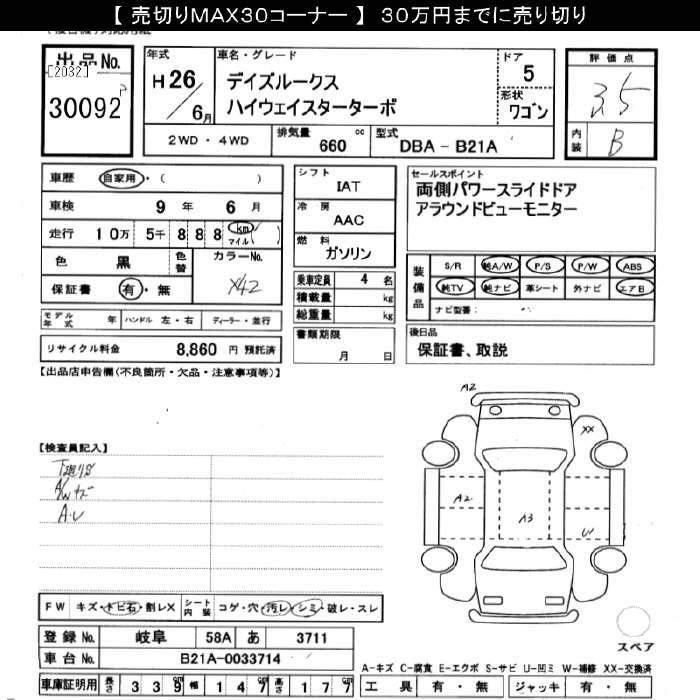 【 売切りMAX30コーナー 】 30万円までに売り切り
出品No.
[2032]
30092
P
年式
H26
6月
車名・グレード
デイズルークス
ハイウェイスターターボ
ドア
5
形状
ワゴン
2WD ・ 4WD
排気量
660
cc
型式
DBA - B21A
評価点
3.5
内装
B
車歴
自家用・( )
車検
9 年 6 月
走行
10万 5千 888
km
マイル
( )
色
黒
色替
カラーNo.
X42
保証書
有・無
モデル年式
年
ハンドル 左・右
ディーラー・並行
リサイクル料金
8,860 円 預託済
シフト
IAT
冷房
AAC
燃料
ガソリン
乗車定員
4 名
積載量
kg
総重量
kg
書類期限
月 日
セールスポイント
両側パワースライドドア
アラウンドビューモニター
装備品
S/R
純A/W
P/S
P/W
ABS
純TV
純ナビ
革シート
外ナビ
エアB
ナビ型番:
後日品
保証書、取説
【出品店申告欄(不良箇所・欠品・注意事項等)】
【検査員記入】
A/Wキズ
A.U
A2
XX
A2
A3
U1
FW
キズ・トビ石・割レX
シート内装
コゲ・穴・汚レ・シミ・破レ・スレ
登録 No.
岐阜
58A
あ
3711
車台 No.
B21A-0033714
車庫証明用
長さ
339
cm
幅
147
cm
高さ
177
cm
スペア
A-キズ C-腐食 E-エクボ S-サビ U-凹ミ W-補修 XX-交換済
工具
有・無
ジャッキ
有・無